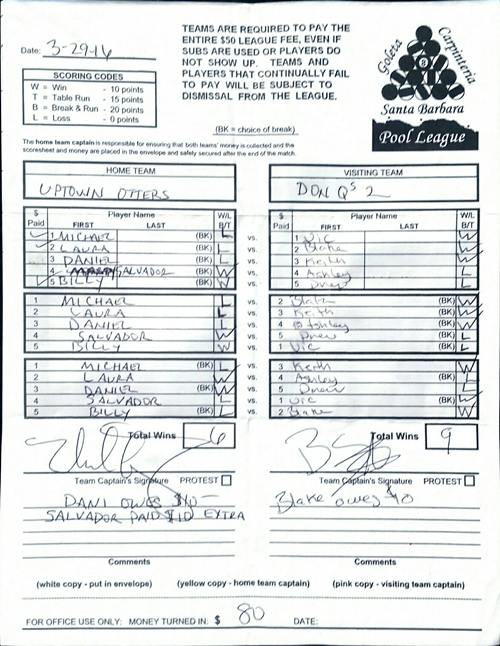 Date: 3-29-16
TEAMS ARE REQUIRED TO PAY THE
ENTIRE $50 LEAGUE FEE, EVEN IF
SUBS ARE USED OR PLAYERS DO
NOT SHOW UP. TEAMS AND
PLAYERS THAT CONTINUALLY FAIL
TO PAY WILL BE SUBJECT TO
DISMISSAL FROM THE LEAGUE.
Goleta Carpinteria
8
Santa Barbara
Pool League
SCORING CODES
W = Win - 10 points
T = Table Run - 15 points
B = Break & Run - 20 points
L = Loss - 0 points
(BK = choice of break)
The home team captain is responsible for ensuring that both teams' money is collected and the
scoresheet and money are placed in the envelope and safely secured after the end of the match.
HOME TEAM VISITING TEAM
UPTOWN OTTERS DON Qs 2
$ Paid Player Name FIRST LAST W/L B/T $ Paid Player Name FIRST LAST W/L B/T
1 MICHAEL (BK) L vs. 1 Vic W
2 LAURA (BK) L vs. 2 Blake W
3 DANIEL (BK) L vs. 3 Keith W
4 SALVADOR (BK) W vs. 4 Ashley L
5 BILLY (BK) W vs. 5 Drew L
1 MICHAEL L vs. 2 Blake (BK) W
2 LAURA L vs. 3 Keith (BK) W
3 DANIEL L vs. 4 Ashley (BK) W
4 SALVADOR W vs. 5 Drew (BK) L
5 BILLY W vs. 1 Vic (BK) L
1 MICHAEL (BK) L vs. 3 Keith W
2 LAURA W vs. 4 Ashley (BK) L
3 DANIEL (BK) W vs. 5 Drew L
4 SALVADOR L vs. 1 Vic (BK) W
5 BILLY (BK) L vs. 2 Blake W
Total Wins 6 Total Wins 9
Team Captain's Signature PROTEST Team Captain's Signature PROTEST
DANI OWES $10 Blake owes $10
SALVADOR PAID $10 EXTRA
Comments Comments
(white copy - put in envelope) (yellow copy - home team captain) (pink copy - visiting team captain)
FOR OFFICE USE ONLY: MONEY TURNED IN: $ 80 DATE: